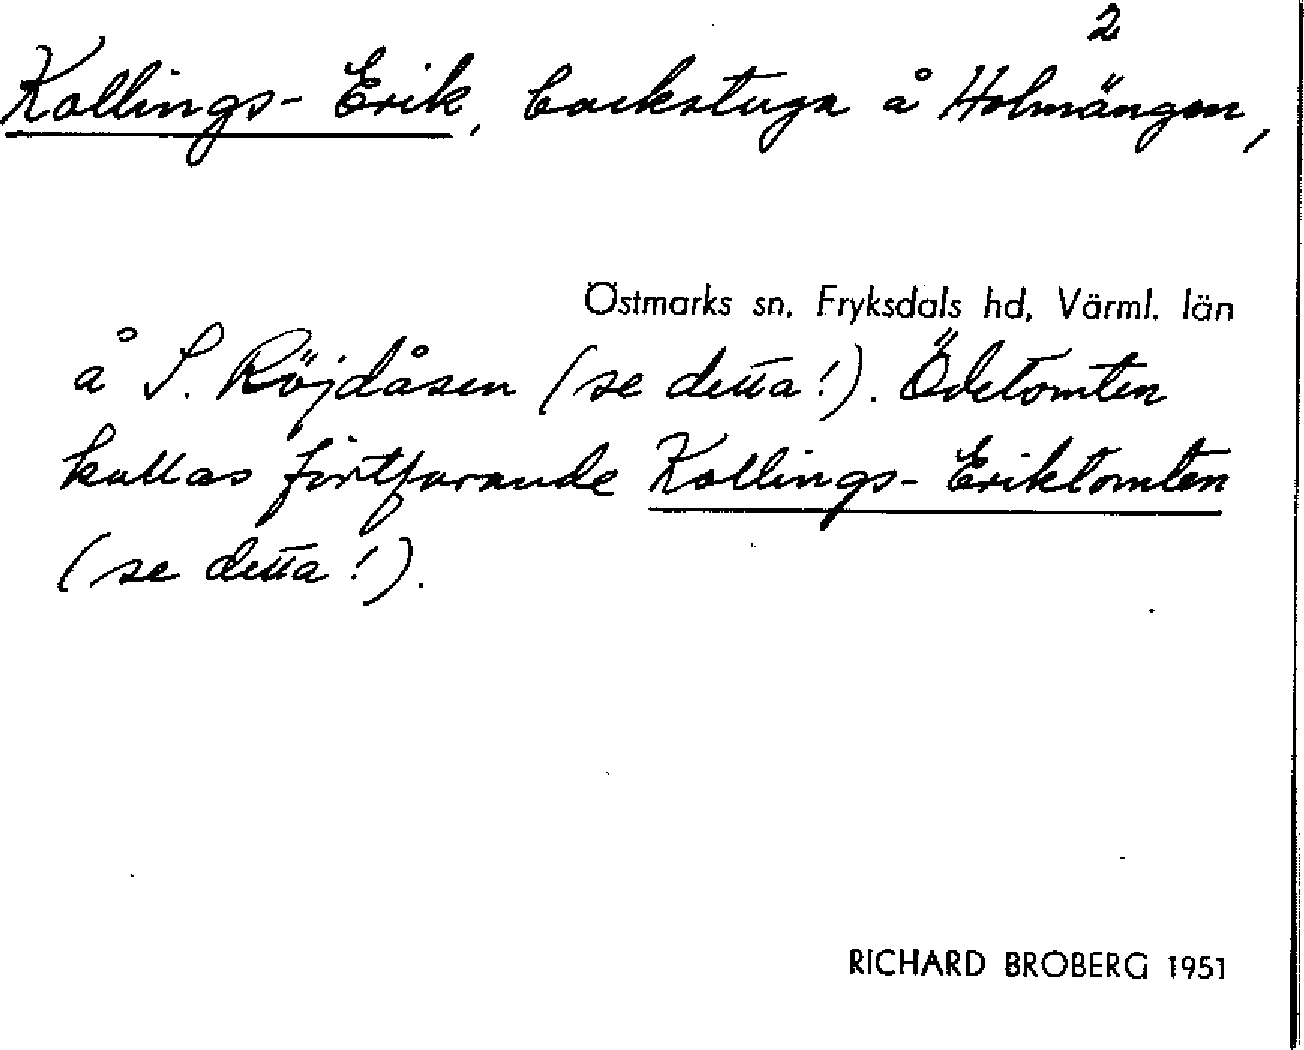 2
Kallings-Erik, backstuga å Holmängen,
Östmarks sn, Fryksdals hd, Värml. län
å S. Röjdåsen (se detta!). Ödetomten
kallas fortfarande Kallings-Eriktomten
(se detta!).
RICHARD BROBERG 1951